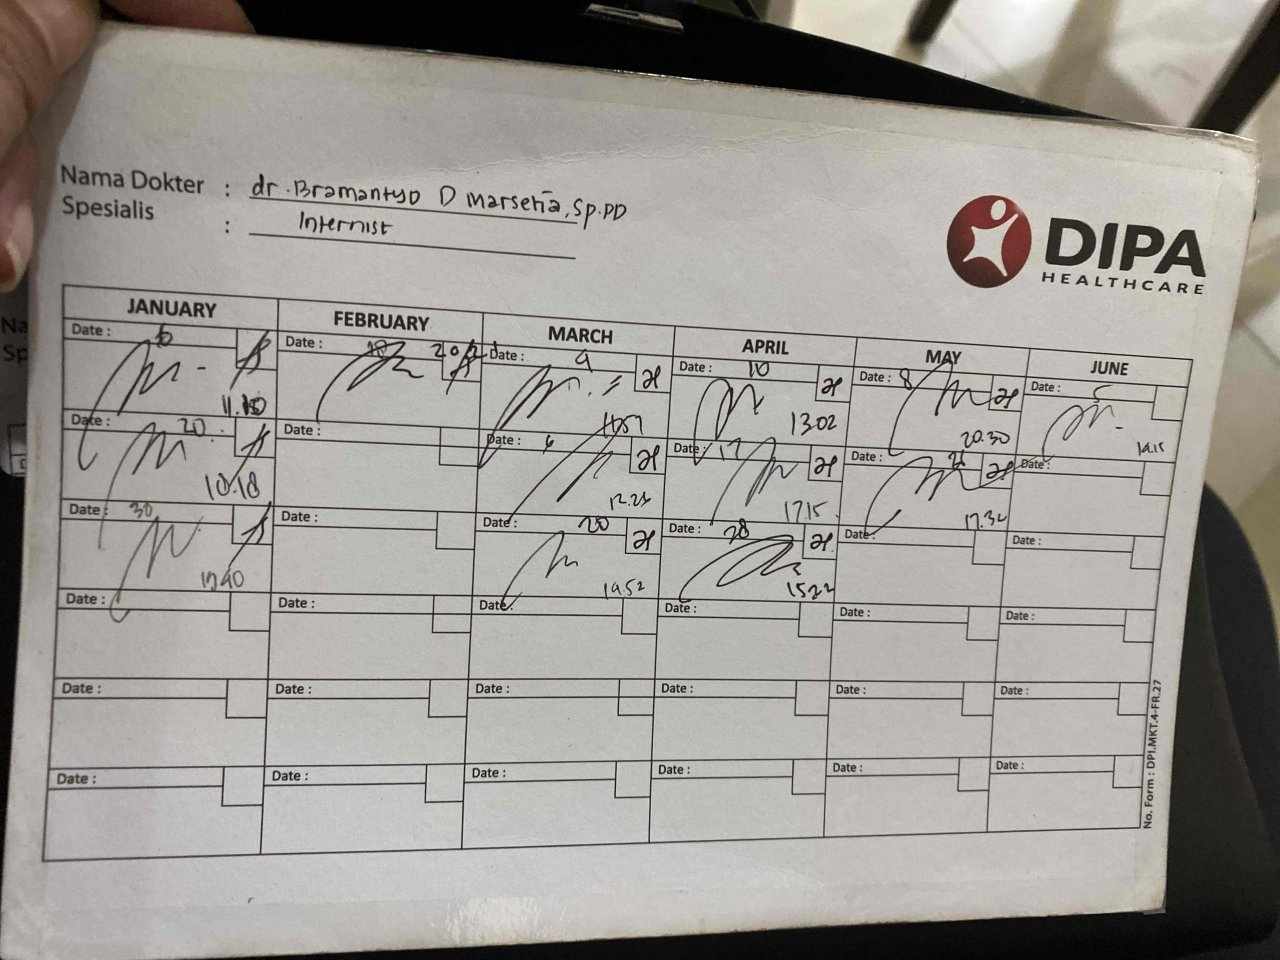 Nama Dokter : dr. Bramantyo D Marsetia, Sp.PD
Spesialis : Internist
DIPA
HEALTHCARE
JANUARY FEBRUARY MARCH APRIL MAY JUNE
Date : 6 Date : 18 Date : 9 Date : 10 Date : 8 Date : 5
13.02 20.30 14.15
Date : 20 Date : Date : 6 Date : 17 Date : Date :
10.18 12.23 17.15 17.32
Date : 30 Date : Date : 20 Date : 28 Date : Date :
19.52 15.22
Date : Date : Date : Date : Date : Date :
Date : Date : Date : Date : Date : Date :
Date : Date : Date : Date : Date : Date :
No. Form : DPI.MKT.4-FR.27